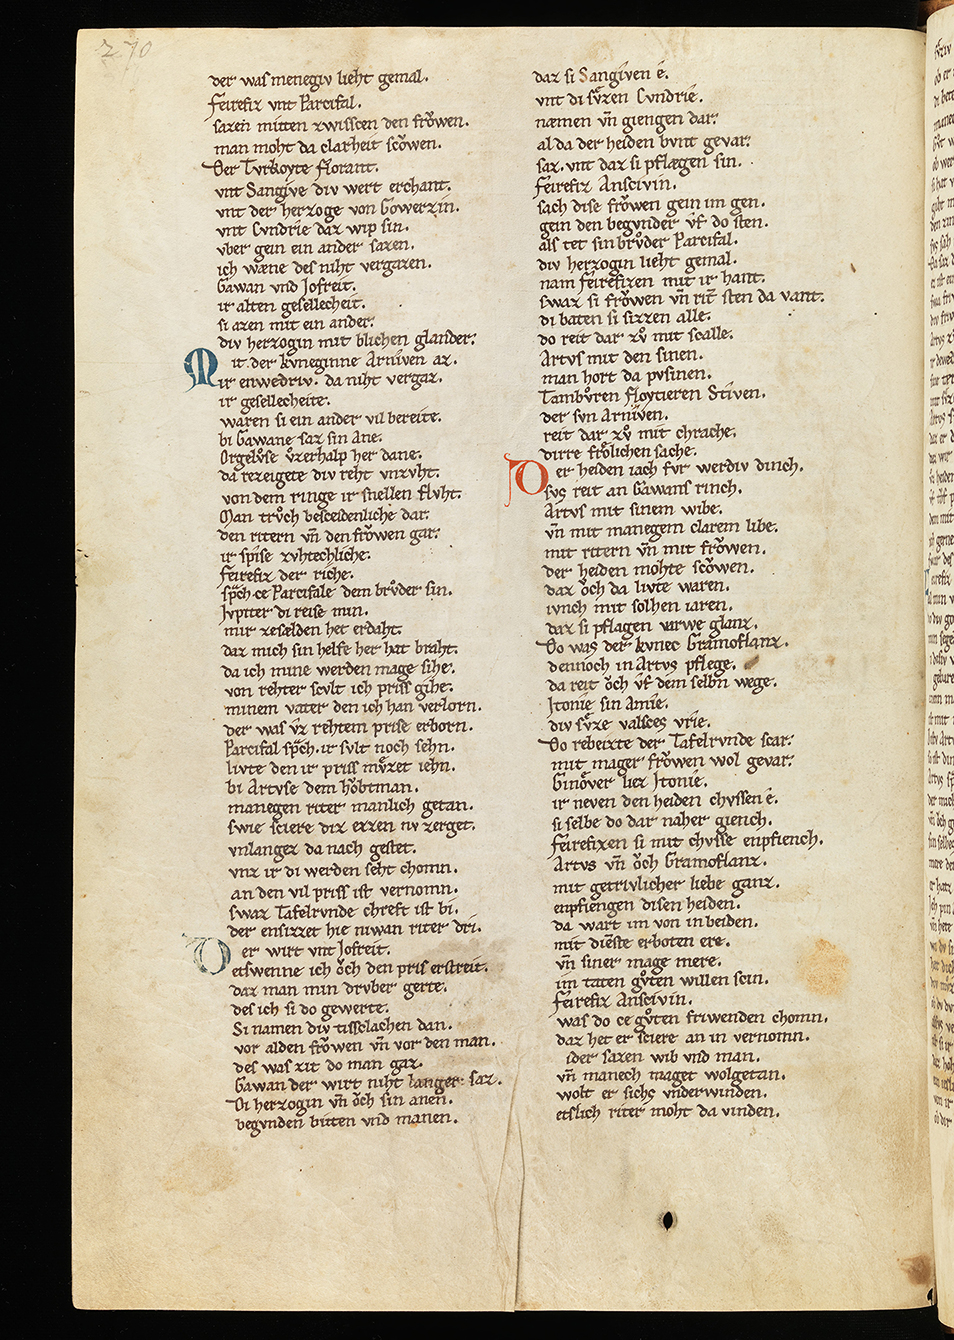 270
der was menegiv lieht gemal.
Feirefiz vnt Parcifal.
sazen mitten zwisscen den frôwen.
man moht da clarheit scôwen.
Der Tvrkoyte Florant.
vnt Sangive div wert erchant.
vnt der herzoge von Gowerzin.
vnt Cvndrie daz wip sin.
vber gein ein ander sazen.
ich wæne des niht vergazen.
Gawan vnd Jofreit.
ir alten gesellecheit.
si azen mit ein ander.
div herzogin mit blichen glander.
Mit der kvneginne Arniven az.
ir enwedriv. da niht vergaz.
ir gesellecheite.
waren si ein ander vil bereite.
bi Gawane saz sin Ane.
Orgelvse vzerhalp her dane.
da rzeigete div reht vnzvht.
von dem ringe ir snellen flvht.
Man trvͦch besceidenliche dar.
den ritern vn̄ den frôwen gar.
ir spise zvhtechliche.
Feirefiz der riche.
sp̄ch ce Parcifale dem brvͦder sin.
Jvpiter di reise min.
mir zesælden het erdaht.
daz mich sin helfe her hat braht.
da ich mine werden mage sihe.
von rehter scvlt ich priss gihe.
minem vater den ich han verlorn.
der was vz rehtem prise erborn.
Parcifal sp̄ch. ir svlt noch sehn.
livte den ir priss mvͤzet iehn.
bi Artvse dem hôbtman.
manegen riter manlich getan.
swie sciere diz ezzen nv zerget.
vnlanger da nach gestet.
vnz ir di werden seht chomn.
an den vil priss ist vernomn.
swaz Tafelrvnde chreft ist bi.
der ensizzet hie niwan riter dri.
Der wirt vnt Jofreit.
etswenne ich ôch den pris erstreit.
daz man min drvber gerte.
des ich si do gewerte.
Si namen div tisselachen dan.
vor alden frôwen vn̄ vor den man.
des was zit do man gaz.
Gawan der wirt niht langer saz.
Di herzogin vn̄ ôch sin anen.
begvnden bitten vnd manen.
daz si Sangiven e.
vnt di svͤzen Cvndrie.
næmen vn̄ giengen dar.
al da der heiden bvnt gevar.
saz. vnt daz si pflægen sin.
Feirefiz Anscivin.
sach dise frôwen gein im gen.
gein den begvnder vf do sten.
als tet sin brvͦder Parcifal.
div herzogin lieht gemal.
nam Feirefizen mit ir hant.
swaz si frôwen vn̄ rit̄ sten da vant.
di baten si sizzen alle.
do reit dar zvͦ mit scalle.
Artvs mit den sinen.
man hort da pvsinen.
Tambvͦren floytieren Stiven.
der svn Arniven.
reit dar zvͦ mit chrache.
dirre frôlichen sache.
Der heiden iach fvr werdiv dinch.
svs reit an Gawans rinch.
Artvs mit sinem wibe.
vn̄ mit manegem clarem libe.
mit ritern vn̄ mit frôwen.
der heiden mohte scôwen.
daz ôch da livte waren.
ivnch mit solhen iaren.
daz si pflagen varwe glanz.
Do was der kvnec Gramoflanz.
dennoch in Artvs pflege.
da reit ôch vf dem selbn wege.
Itonie sin Amie.
div svͤze valsces vrie.
Do rebeizte der Tafelrvnde scar.
mit mager frôwen wol gevar.
Ginôver liez Jtonie.
ir neven den heiden chvssen e.
si selbe do dar naher giench.
Feirefizen si mit chvsse enpfiench.
Artvs vn̄ ôch Gramoflanz.
mit getrivlicher liebe ganz.
enpfiengen disen heiden.
da wart im von in beiden.
mit dienste erboten ere.
vn̄ siner mage mere.
im taten gvͦten willen scin.
Feirefiz Anscivin.
was do ce gvͦten friwenden chomn.
daz het er sciere an in vernomn.
ider sazen wib vnd man.
vn̄ manech maget wolgetan.
wolt er sichs vnderwinden.
etslich riter moht da vinden.